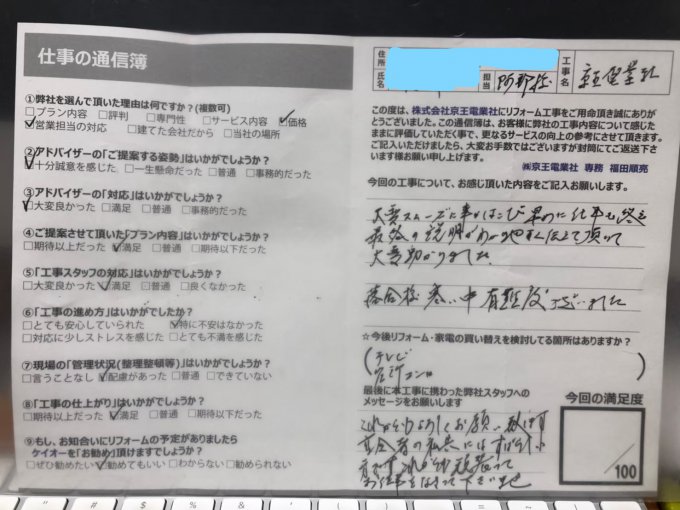 仕事の通信簿
①弊社を選んで頂いた理由は何ですか?(複数可)
□プラン内容 □評判 □専門性 □サービス内容 □価格
□営業担当の対応 □建てた会社だから □当社の場所
②アドバイザーの「ご提案する姿勢」はいかがでしょうか?
□十分誠意を感じた □一生懸命だった □普通 □事務的だった
③アドバイザーの「対応」はいかがでしょうか?
□大変良かった □満足 □普通 □事務的だった
④ご提案させて頂いた「プラン内容」はいかがでしょうか?
□期待以上だった □満足 □普通 □期待以下だった
⑤「工事スタッフの対応」はいかがでしょうか?
□大変良かった □満足 □普通 □良くなかった
⑥「工事の進め方」はいかがでしたか?
□とても安心していられた □特に不安はなかった
□対応に少しストレスを感じた □とても不満を感じた
⑦現場の「管理状況(整理整頓等)」はいかがでしょうか?
□言うことなし □配慮があった □普通 □できていない
⑧「工事の仕上がり」はいかがでしょうか?
□期待以上だった □満足 □普通 □期待以下だった
⑨もし、お知合いにリフォームの予定がありましたら
ケイオーを「お勧め」頂けますでしょうか?
□ぜひ勧めたい □勧めてもいい □わからない □勧められない
住所
氏名
担当
工事名
この度は、株式会社京王電業社にリフォーム工事をご用命頂き誠にありが
とうございました。この通信簿は、お客様に弊社の工事内容について感じた
ままに評価していただく事で、更なるサービスの向上の参考にさせて頂きます。
ご記入いただけましたら、大変お手数ではございますが封筒にてご返送下さ
います様お願い申し上げます。
㈱京王電業社 専務 福田順亮
今回の工事について、お感じ頂いた内容をご記入お願いします。
大変スムーズに事がはこび早めに仕事も終え
最後の説明がわかり
大変助かりました
落合様 寒い中有難うございました
☆今後リフォーム・家電の買い替えを検討してる箇所はありますか?
(テレビ
)
最後に本工事に携わった弊社スタッフへの
メッセージをお願いします
これからもよろしくお願い致します
これからも頑張って
お仕事をなさって下さいませ
今回の満足度
/100